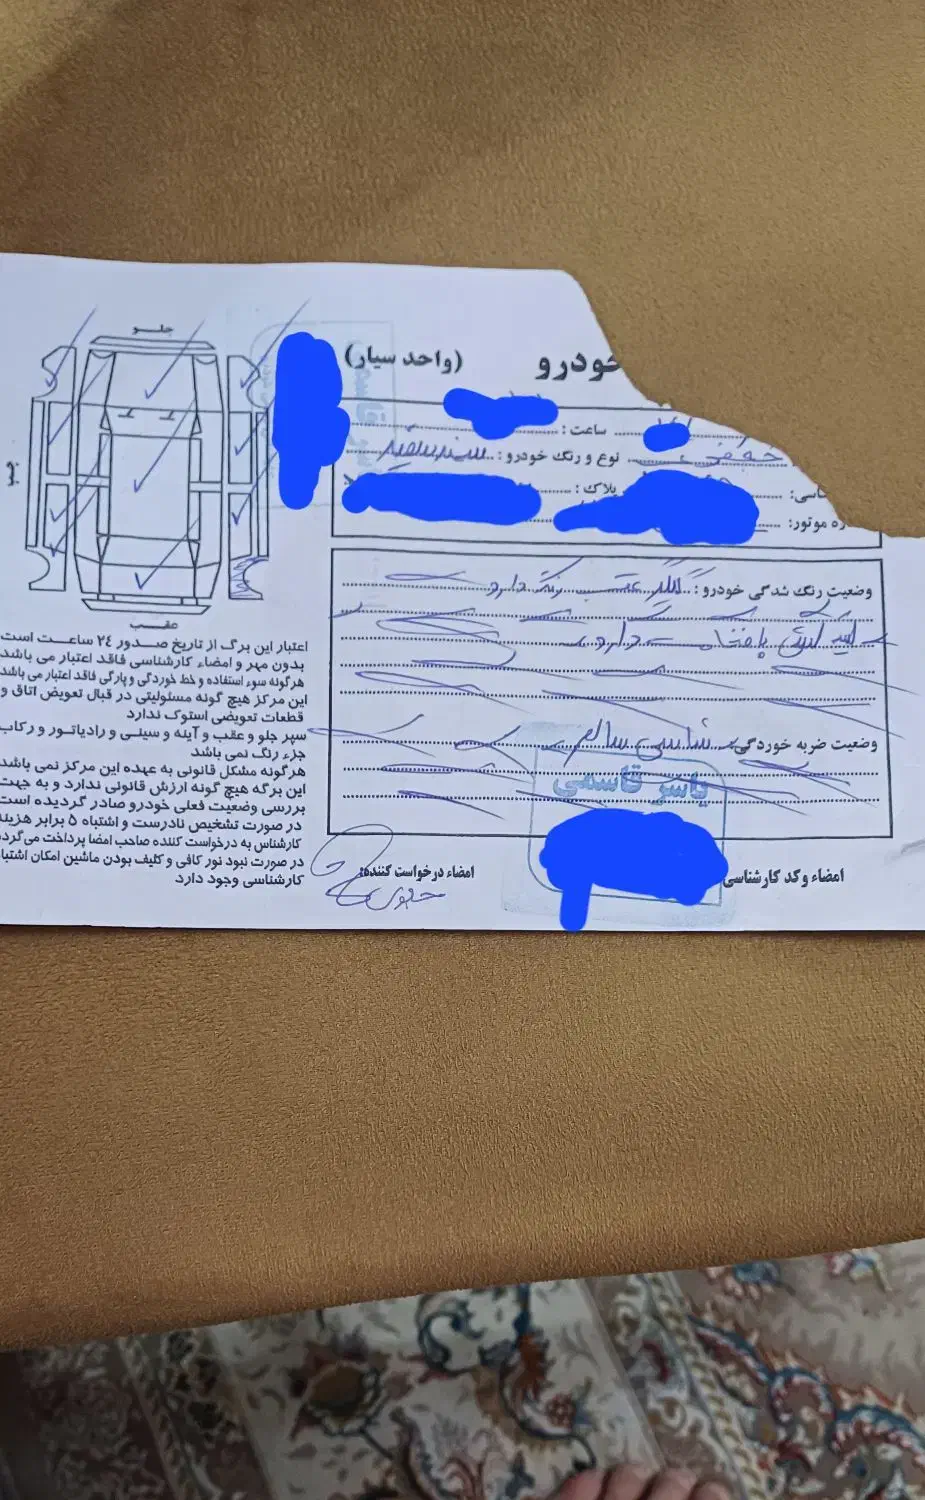 خودرو (واحد سیار)
ساعت :
نوع و رنگ خودرو : سمند سفید
اسی: پلاک :
ره موتور:
وضعیت رنگ شدگی خودرو : گلگیر عقب رنگ دارد
وضعیت ضربه خوردگی شاسی سالم
یاسر قاسمی
امضاء و کد کارشناسی
امضاء درخواست کننده:
جلو
جنب
عقب
اعتبار این برگ از تاریخ صدور ٢٤ ساعت است
بدون مهر و امضاء کارشناسی فاقد اعتبار می باشد
هرگونه سوء استفاده و خط خوردگی و پارگی فاقد اعتبار می باشد
این مرکز هیچ گونه مسئولیتی در قبال تعویض اتاق و
قطعات تعویضی استوک ندارد
سپر جلو و عقب و آینه و سینی و رادیاتور و رکاب
جزء رنگ نمی باشد
هرگونه مشکل قانونی به عهده این مرکز نمی باشد
این برگه هیچ گونه ارزش قانونی ندارد و به جهت
بررسی وضعیت فعلی خودرو صادر گردیده است
در صورت تشخیص نادرست و اشتباه ۵ برابر هزینه
کارشناس به درخواست کننده صاحب امضا پرداخت می گردد
در صورت نبود نور کافی و کثیف بودن ماشین امکان اشتباه
کارشناسی وجود دارد